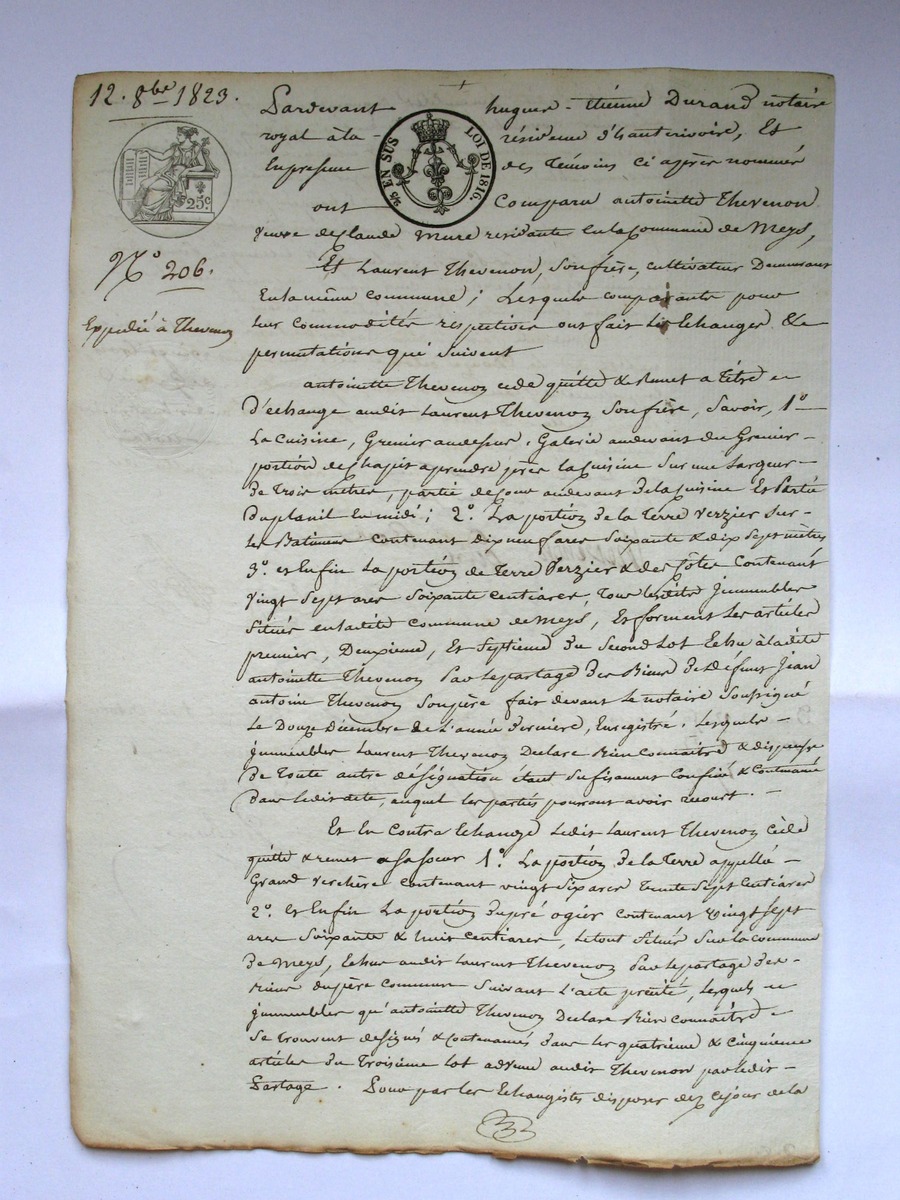 12. 8bre 1823.
25c
N° 206.
Expedié à Thevenon
⅖ EN SUS LOI DE 1816.
Pardevant hugues-étiénne Durand notaire
royal à la résidence d'hauterivoire, Et
En presence des témoins ci après nommés
ont Comparu antoinette Thevenon
veuve de Claude Mure residante en la Commune de Meys,
Et Laurent Thevenon, Son frère, cultivateur Demeurant
En la même commune ; Lesquels comparants pour
leur commodités respectives ont fait les Echanges &
permutations qui Suivent
antoinette Thevenon cède quitte & Remet a titre
D'échange audit Laurent Thevenon Son frère, Savoir, 1°
La Cuisine, Grenier audessus, Galerie audevant du Grenier
portion de Chapit a prendre près la Cuisine Sur une Largeur
de Trois mètres, partie de Cour audevant de la Cuisine Et Partie
Du planil En midi ; 2°. La portion de la Terre verzier Sur
Les Batimens contenant dix neuf ares Soixante & dix Sept mètres
3°. et Enfin La portion de Terre Verzier & des Côtes Contenant
vingt Sept ares Soixante centiares, Tous lesdits Immeubles
Situés en ladite commune de Meys, Et forment Les articles
premier, Deuxieme, Et Septieme du Second Lot Echu à ladite
antoinette Thevenon Par le partage Des Biens de Défunt Jean
antoine Thevenon Son père fait devant Le notaire Soussigné
Le Douze Décembre de L'année derniere, Enregistré. Lesquels
immeubles Laurent Thevenon Declare Bien Connaitre & dispense
De toute autre désignation étant Sufisament Confiné & Contenancé
dans ledit acte, auquel les parties pourront avoir recourt.
Et En Contre Echange ledit Laurent Thevenon cède
quitte & remet a Sa Soeur 1°. La portion de la Terre appellée
Grand verchère contenant vingt Six ares Trente Sept Centiares
2°. et Enfin La portion du pré ogier contenant vingt Sept
ares Soixante & huit centiares, Le tout Situé Sur la commune
De Meys, Echus audit Laurent Thevenon Par le partage des
Biens du père commun Suivant L'acte précité, Lesquels
immeubles qu'antoinette Thevenon Declare Bien Connaitre
Se trouvent designés & contenancés dans les quatrième & Cinquième
articles du Troisième lot advenu audit Thevenon par ledit
Partage. Pour par les Echangistes disposer dez ce jour de la